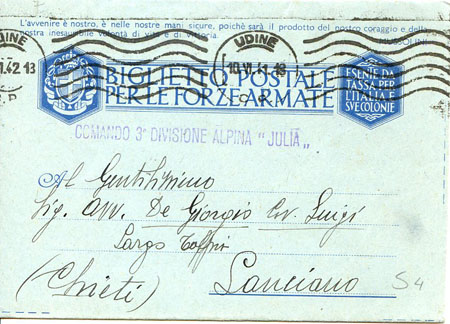 L'avvenire è nostro, è nelle nostre mani sicure, poichè sarà il prodotto del nostro coraggio e della
nostra inesauribile volontà di vita e di vittoria
MUSSOLINI
UDINE
UDINE
10.VI.42.13
BIGLIETTO POSTALE
PER LE FORZE ARMATE
ESENTE DA
TASSA PER
L'ITALIA E
SVE COLONIE
COMANDO 3ª DIVISIONE ALPINA "JULIA"
Al Gentilissimo
Sig. Avv. De Giorgio Cav. Luigi
Largo
(Chieti) Lanciano
S4